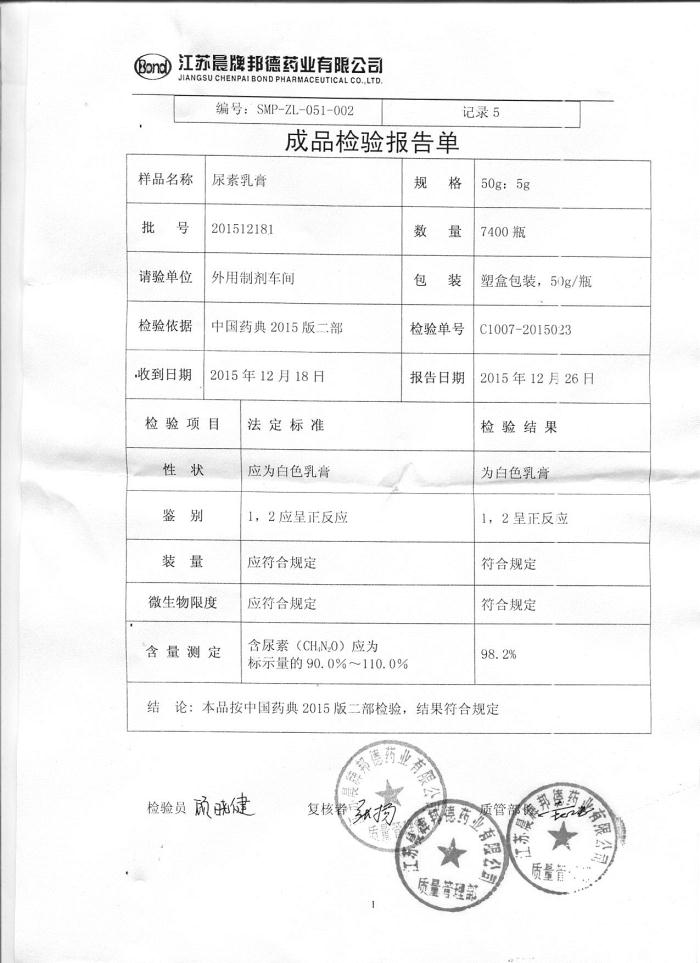 Bond 江苏晨牌邦德药业有限公司
JIANGSU CHENPAI BOND PHARMACEUTICAL CO.,LTD.
编号：SMP-ZL-051-002 记录 5
成品检验报告单
样品名称 尿素乳膏 规 格 50g：5g
批 号 201512181 数 量 7400 瓶
请验单位 外用制剂车间 包 装 塑盒包装，50g/瓶
检验依据 中国药典 2015 版二部 检验单号 C1007-2015023
收到日期 2015 年 12 月 18 日 报告日期 2015 年 12 月 26 日
检 验 项 目 法 定 标 准 检 验 结 果
性 状 应为白色乳膏 为白色乳膏
鉴 别 1，2 应呈正反应 1，2 呈正反应
装 量 应符合规定 符合规定
微生物限度 应符合规定 符合规定
含 量 测 定 含尿素（CH₄N₂O）应为
标示量的 90.0%～110.0% 98.2%
结 论：本品按中国药典 2015 版二部检验，结果符合规定
检验员 复核者 质管部
江苏晨牌邦德药业有限公司
质量管
江苏晨牌邦德药业有限公司
质量管理部
江苏晨牌邦德药业有限公司
质量管
1